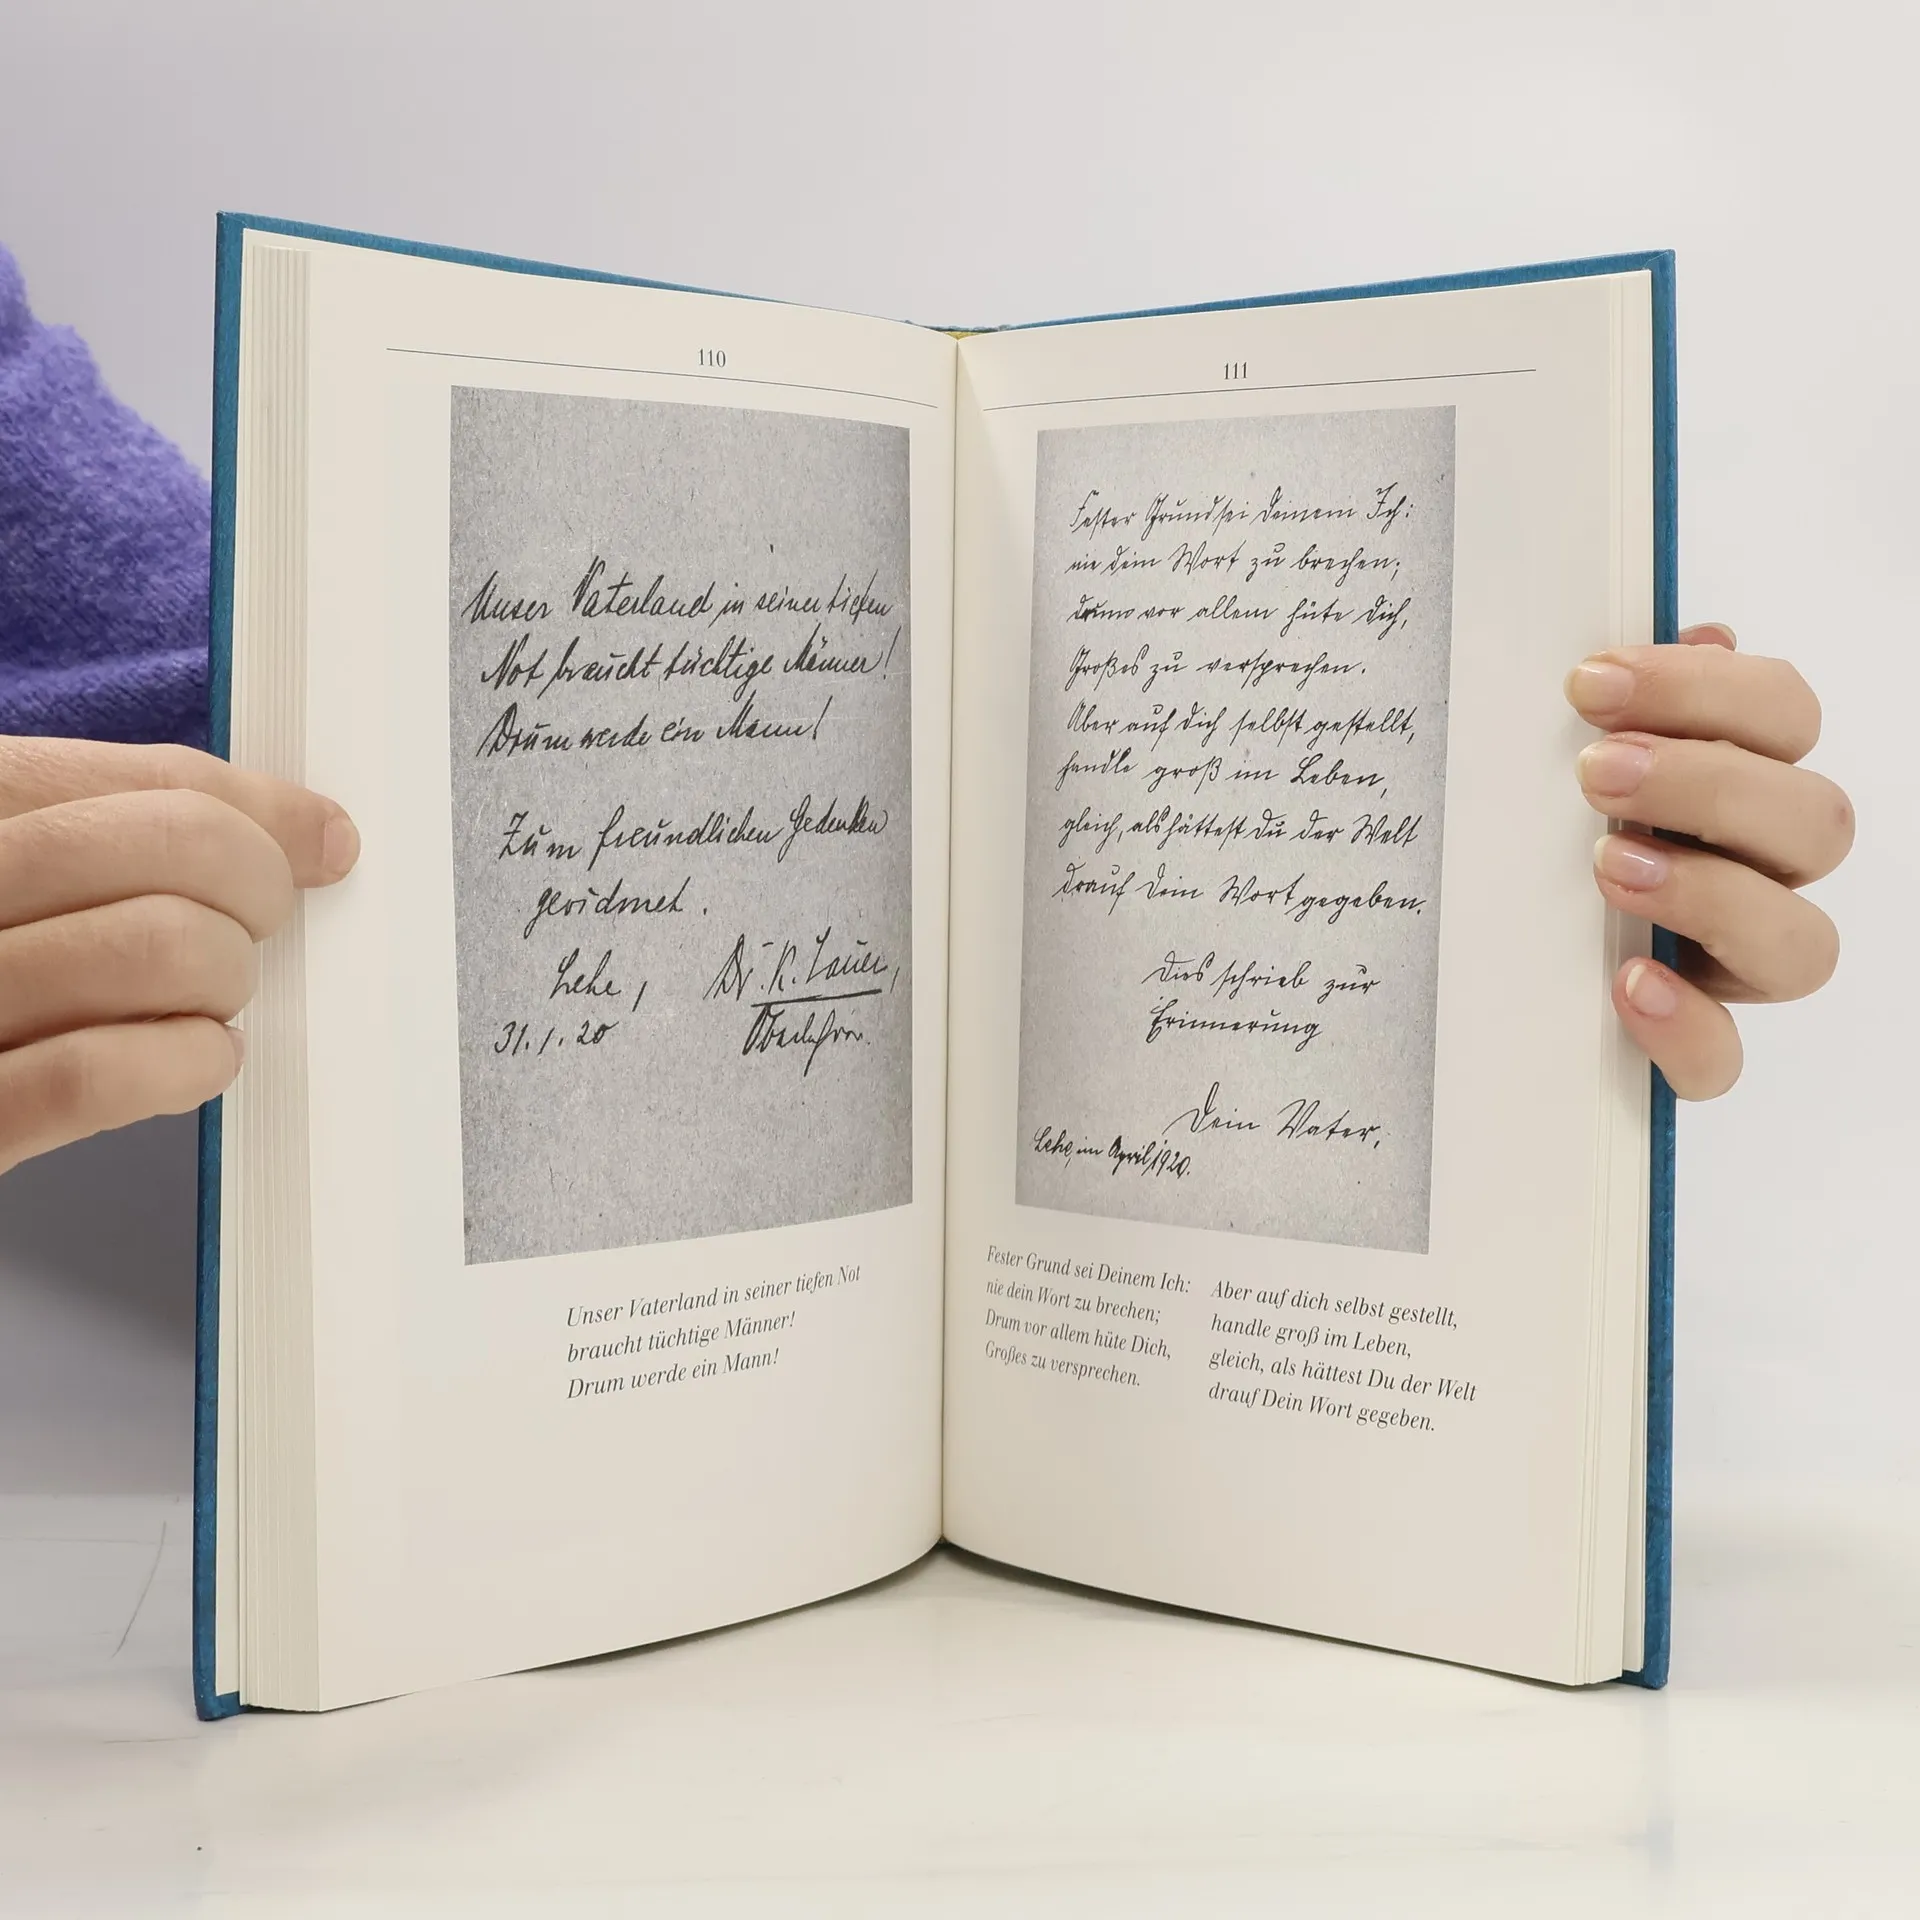 110
Unser Vaterland in seiner tiefen
Not braucht tüchtige Männer!
Drum werde ein Mann!
Zum freundlichen Gedenken
gewidmet.
Lehe,
Dr. K. Lauer,
31.1.20
Oberlehrer.
Unser Vaterland in seiner tiefen Not
braucht tüchtige Männer!
Drum werde ein Mann!
111
Fester Grund sei Deinem Ich:
nie dein Wort zu brechen;
drum vor allem hüte Dich,
Großes zu versprechen.
Aber auf dich selbst gestellt,
handle groß im Leben,
gleich, als hättest Du der Welt
drauf Dein Wort gegeben.
Dies schrieb zur
Erinnerung
Dein Vater,
Lehe, im April 1920.
Fester Grund sei Deinem Ich:
nie dein Wort zu brechen;
Drum vor allem hüte Dich,
Großes zu versprechen.
Aber auf dich selbst gestellt,
handle groß im Leben,
gleich, als hättest Du der Welt
drauf Dein Wort gegeben.